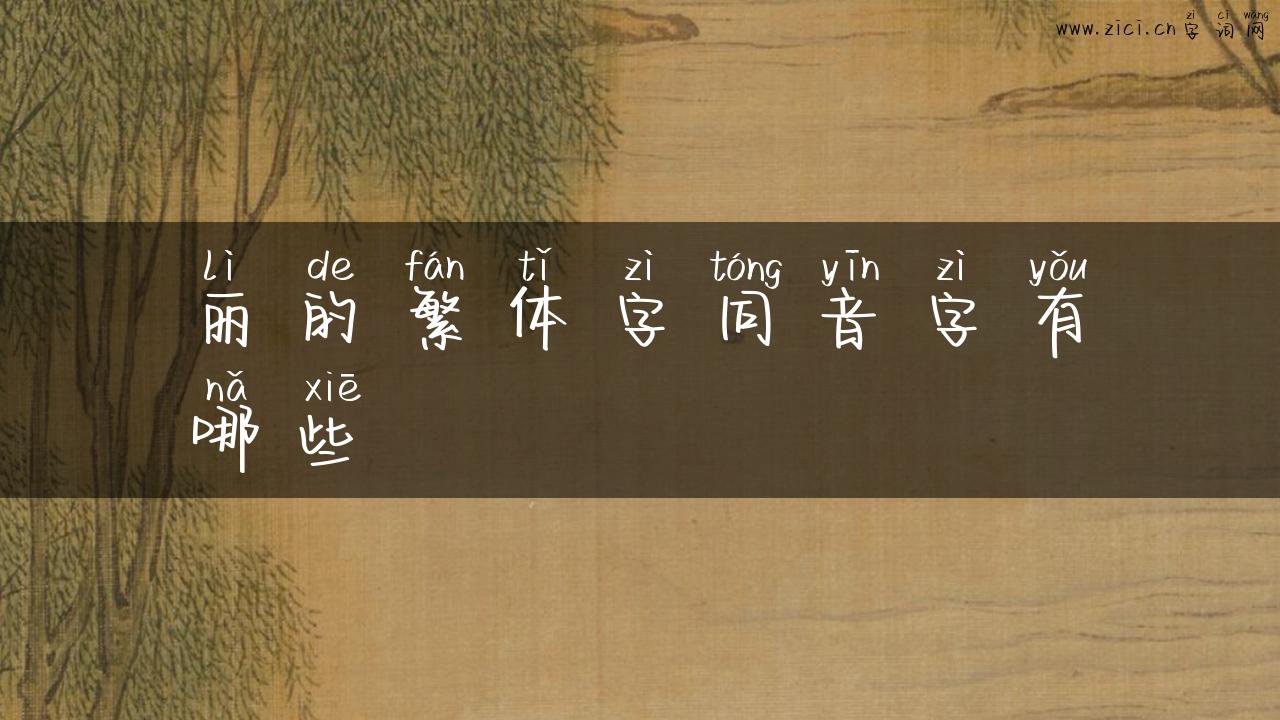 zì cí wǎng
www.zici.cn 字词网
lì de fán tǐ zì tóng yīn zì yǒu
丽的繁体字同音字有
nǎ xiē
哪些